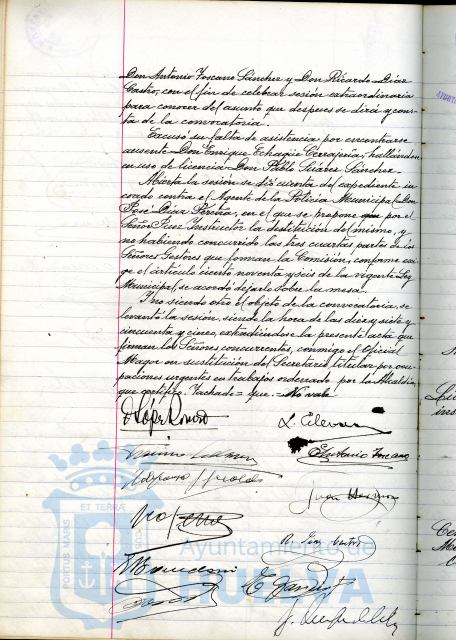 Don Antonio Toscano Sánchez y Don Ricardo Díaz
Castro, con el fin de celebrar sesión extraordinaria
para conocer del asunto que despues se dirá y cons-
ta de la convocatoria.
Excusó su falta de asistencia por encontrarse
ausente Don Enrique Echagüe Cerrapeña, hallándose
en uso de licencia Don Pablo Suárez Sánchez.
Abierta la sesión se dió cuenta del expediente in-
coado contra el Agente de la Policía Municipal Don
José Díaz Pereña, en el que se propone que por el
Señor Juez Instructor la destitución del mismo, y
no habiendo concurrido las tres cuartas partes de los
Señores Gestores que forman la Comisión, conforme exi-
ge el artículo ciento noventa y seis de la vigente Ley
Municipal, se acordó dejarlo sobre la mesa.
Y no siendo otro el objeto de la convocatoria, se
levantó la sesión, siendo la hora de las diez y siete y
cincuenta y cinco, extendiéndose la presente acta que
firman los Señores concurrentes, conmigo el Oficial
Mayor en sustitución del Secretario titular por ocu-
paciones urgentes en trabajos ordenado por la Alcaldía,
que certifico. Tachado = que = No vale
López Romero
Antonio Toscano
R. Díaz Castro
ET TERRA
PORTUS MARIS
CUSTODIA
Ayuntamiento de
HUELVA